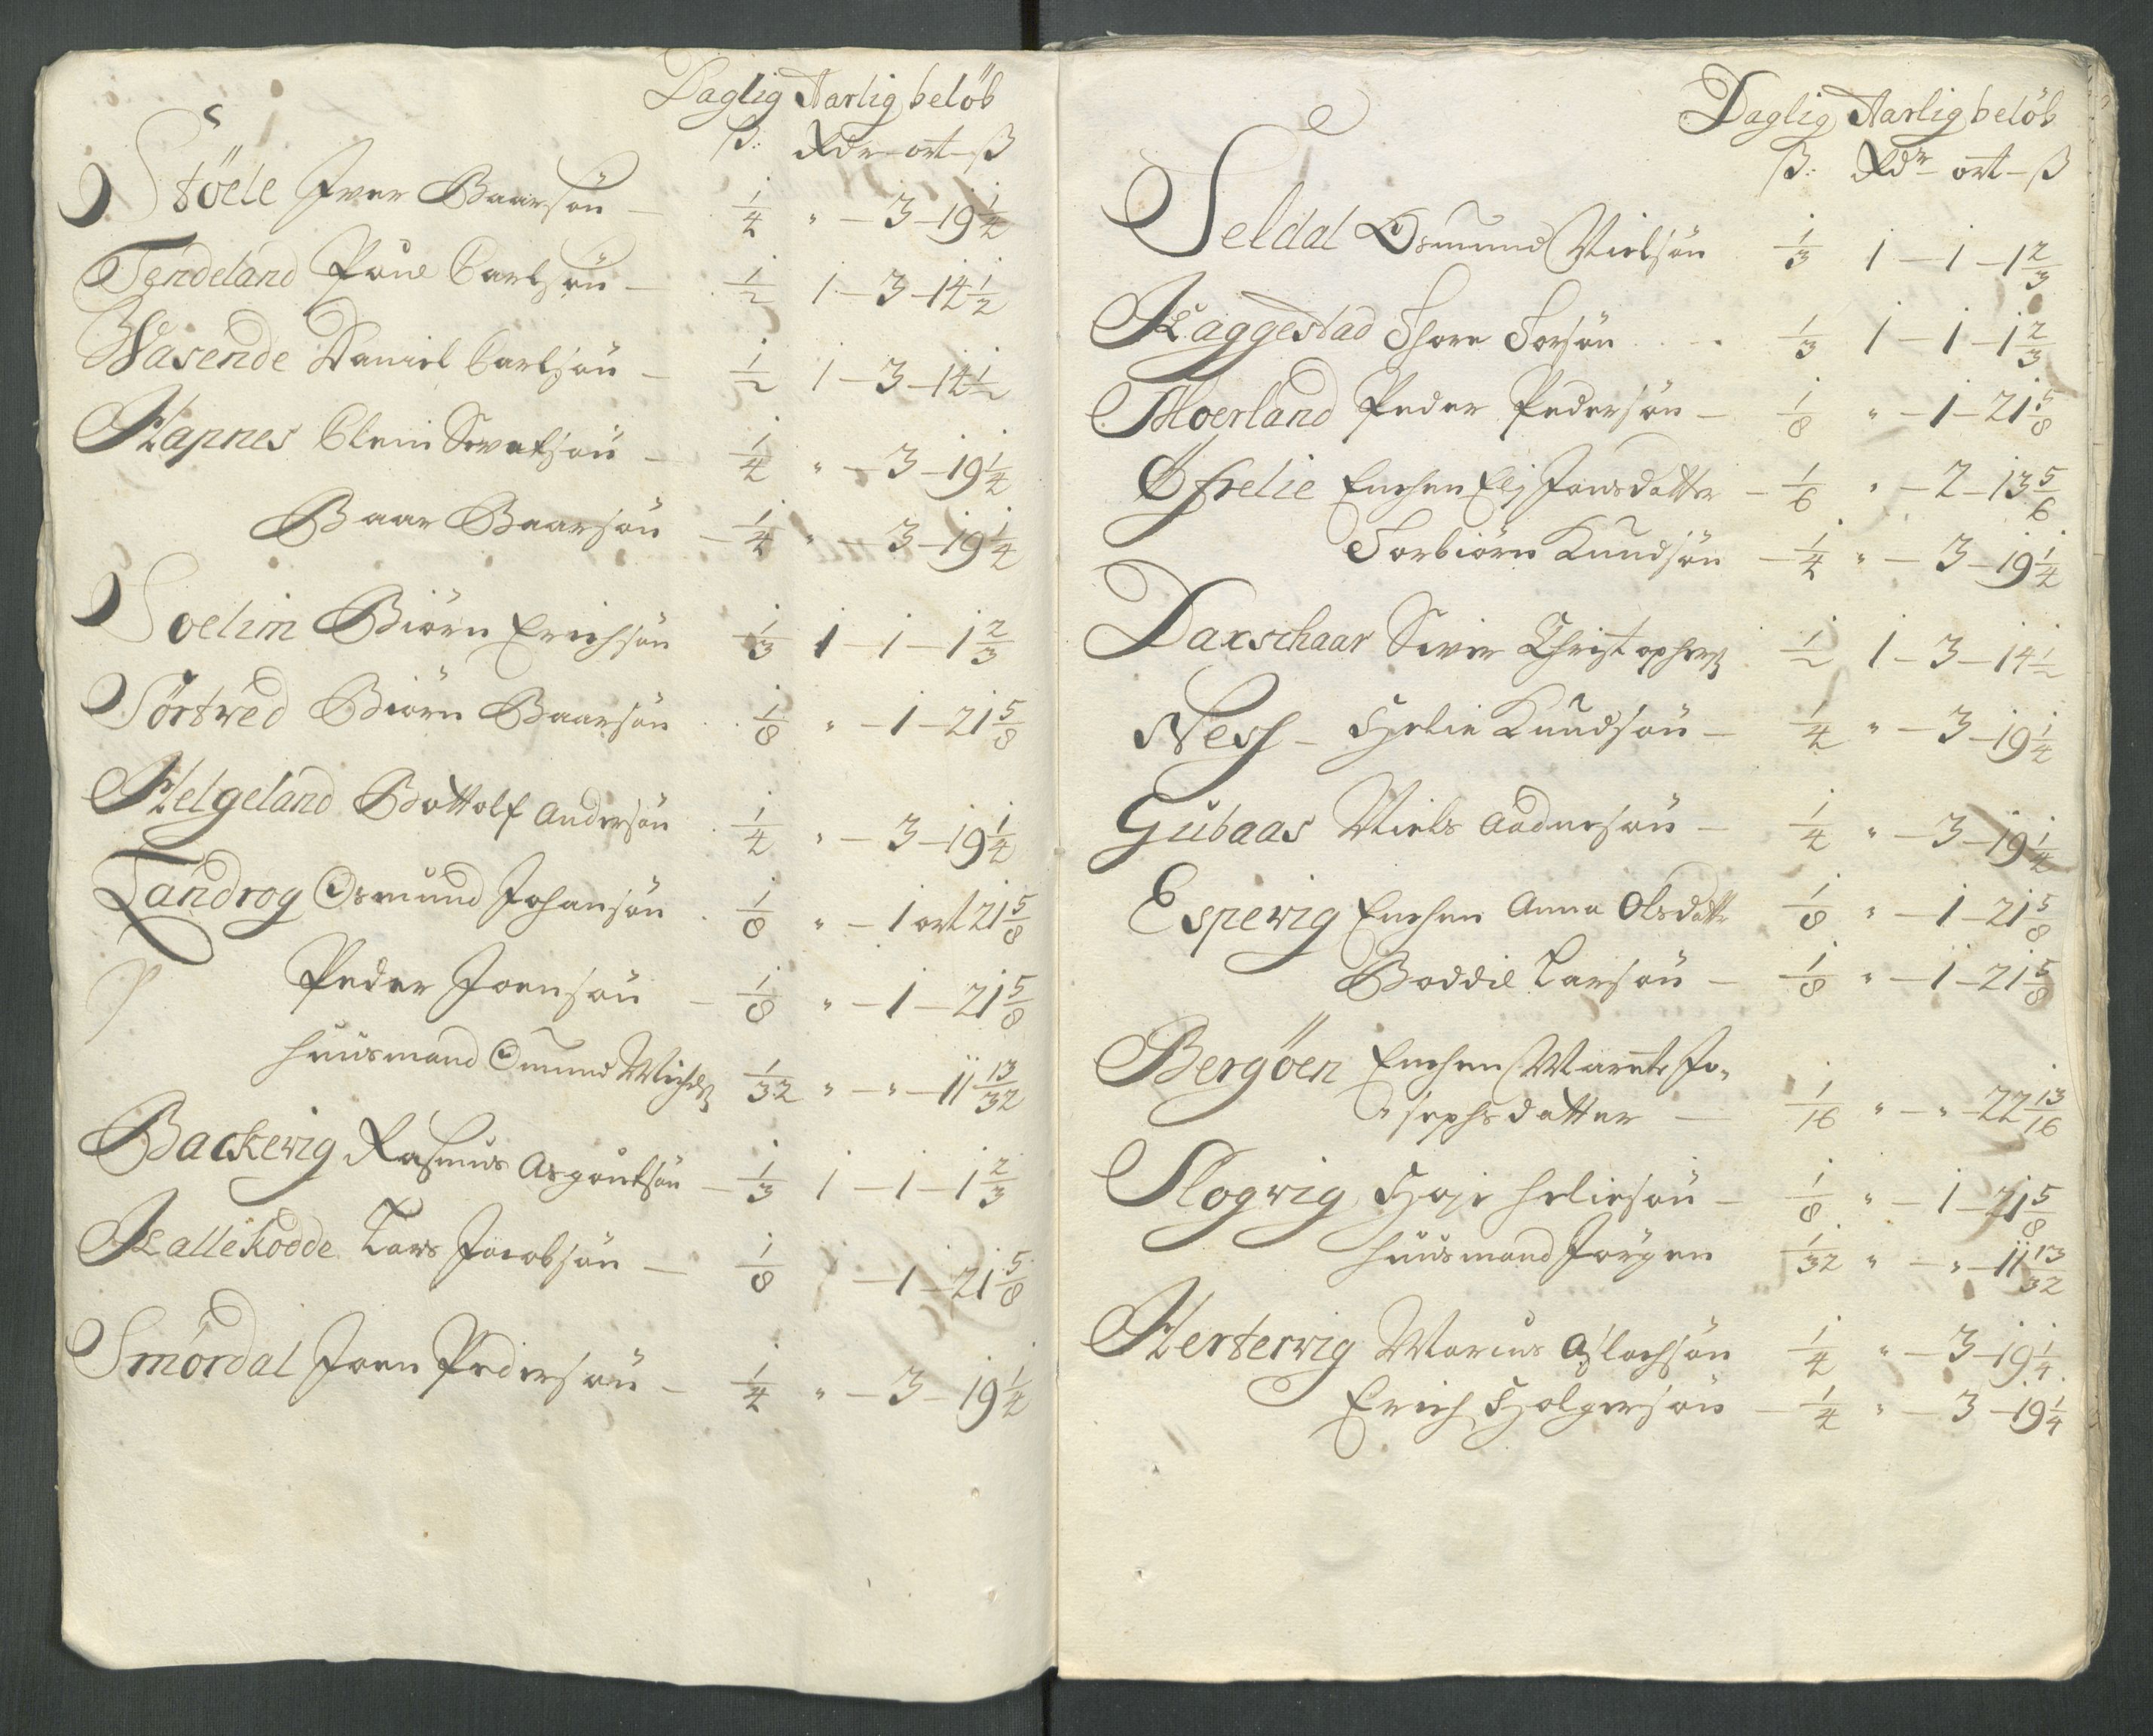 Daglig Aarlig belöb
ß: Rdr ort ß
Stöele Iver Baarsön — 1/4 " — 3 — 19 1/4
Tendeland Poul Carlsön — 1/2 1 — 3 — 14 1/2
Wasende Daniel Carlsön — 1/2 1 — 3 — 14 1/2
Hapnes Clem Sevatsön — 1/4 " — 3 — 19 1/4
Baar Baarsön — 1/4 " — 3 — 19 1/4
Soelim Biörn Erichsön 1/3 1 — 1 — 1 2/3
Törtwed Biörn Baarsön 1/8 " — 1 — 21 5/8
Helgeland Bottolf Andersön 1/4 " — 3 — 19 1/4
Landrog Osmund Johansön 1/8 " — 1 ort 21 5/8
Peder Joensön — 1/8 " — 1 — 21 5/8
Huusmand Omund 1/32 " — " — 11 13/32
Backevig Rasmus Asgoutsön — 1/3 1 — 1 — 1 2/3
Kallekodde Lars Jacobsön — 1/8 — 1 — 21 5/8
Smördal Joen Pedersön — 1/4 " — 3 — 19 1/4
Daglig Aarlig belöb
ß: Rdr ort — ß
Seldal Osmund Nielsön 1/3 1 — 1 — 1 2/3
Kaggestad Thore Torsön 1/3 1 — 1 — 1 2/3
Moerland Peder Pedersön — 1/8 " — 1 — 21 5/8
Öfrelie Enchen Elj Jonsdatter — 1/6 " — 2 — 13 5/6
Torbiörn Knudsön — 1/4 " — 3 — 19 1/4
Daxschaar Siver Christophers 1/2 1 — 3 — 14 1/2
Nesf — Helie Knudsön — 1/4 " — 3 — 19 1/4
Gubaas Niels Aadnesön — 1/4 " — 3 — 19 1/4
Espevig Enchen Anna Olsdattr 1/8 " — 1 — 21 5/8
Boddil Larsön — 1/8 " — 1 — 21 5/8
Bergöen Enchen Marrete Jo„
„sephsdatter — 1/16 " — " — 22 13/16
Slogvig Haje Heliesön — 1/8 " — 1 — 21 5/8
Huusmand Jörgen 1/32 " — " — 11 13/32
Hertervig Marcus Aslachsön 1/4 " — 3 — 19 1/4
Erich Holgersön — 1/4 " — 3 — 19 1/4